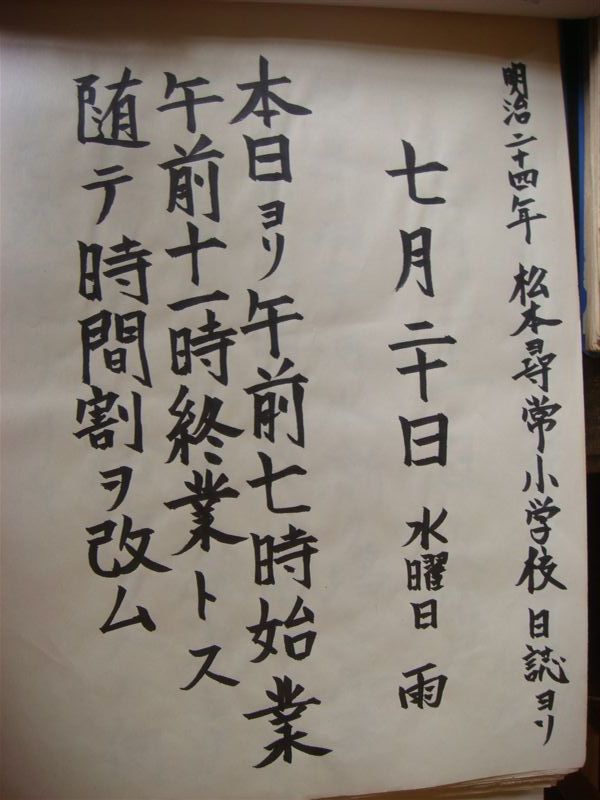 明治二十四年 松本尋常小学校 日誌ヨリ
七月二十日 水曜日 雨
本日ヨリ午前七時始業
午前十一時終業トス
随テ時間割ヲ改ム